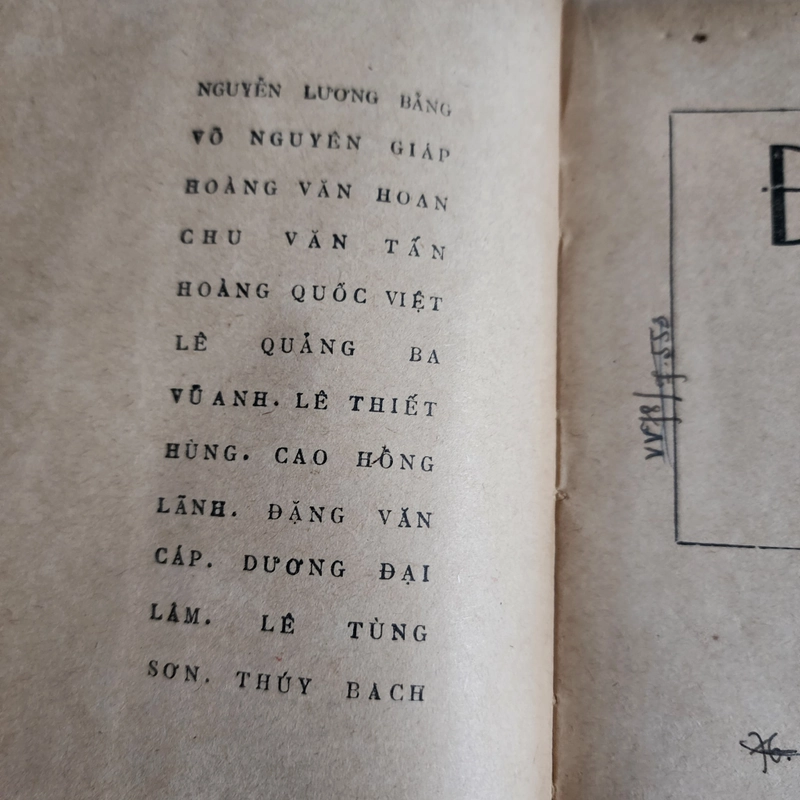 NGUYỄN LƯƠNG BẰNG
VÕ NGUYÊN GIÁP
HOÀNG VĂN HOAN
CHU VĂN TẤN
HOÀNG QUỐC VIỆT
LÊ QUẢNG BA
VŨ ANH. LÊ THIẾT
HÙNG. CAO HỒNG
LÃNH. ĐẶNG VĂN
CÁP. DƯƠNG ĐẠI
LÂM. LÊ TÙNG
SƠN. THÚY BACH